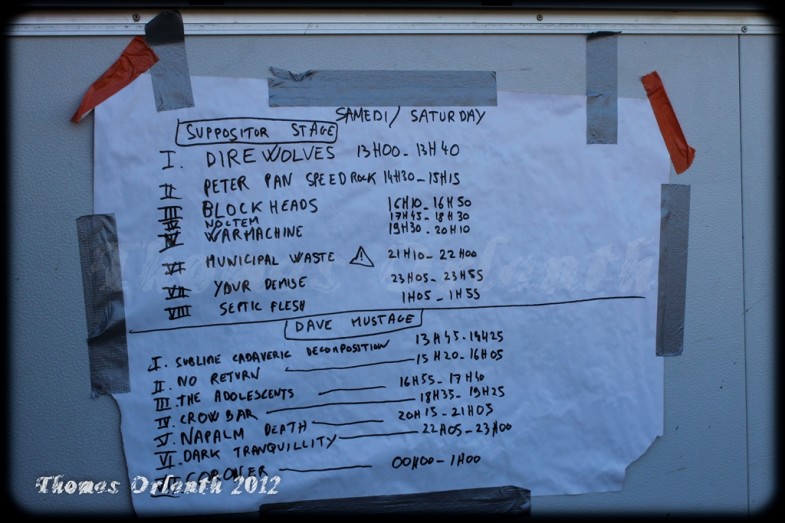 SAMEDI/ SATURDAY
SUPPOSITOR STAGE
I. DIRE WOLVES 13H00 - 13H40
II PETER PAN SPEEDROCK 14H30 - 15H15
III BLOCKHEADS 16H10 - 16H50
IV NOCTEM 17H45 - 18H30
V WARMACHINE 19H30 - 20H10
VI MUNICIPAL WASTE ⚠ 21H10 - 22H00
VII YOUR DEMISE 23H05 - 23H55
VIII SEPTIC FLESH 1H05 - 1H55
DAVE MUSTAGE
I. SUBLIME CADAVERIC DECOMPOSITION 13H45 - 14H25
II. NO RETURN 15H20 - 16H05
III. THE ADOLESCENTS 16H55 - 17H40
IV. CROWBAR 18H35 - 19H25
V. NAPALM DEATH 20H15 - 21H05
VI. DARK TRANQUILLITY 22H05 - 23H00
CORONER 00H00 - 1H00
Thomas Orlanth 2012
Thomas Orlanth